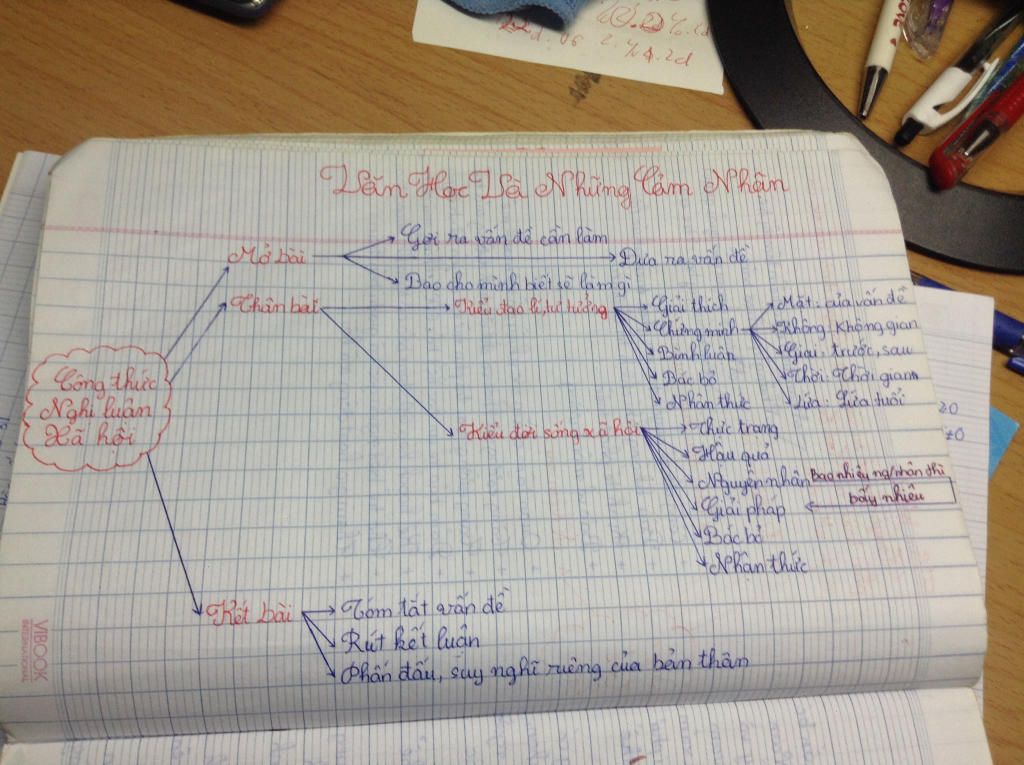 Văn Học Và Những Cảm Nhận
Công thức
Nghị luận
Xã hội
Mở bài
Gợi ra vấn đề cần làm
Đưa ra vấn đề
Báo cho mình biết sẽ làm gì
Thân bài
Kiểu đạo lí, tư tưởng
Giải thích
Chứng minh
Mặt: của vấn đề
Không: Không gian
Giai: trước, sau
Thời: Thời gian
Lứa: Lứa tuổi
Bình luận
Bác bỏ
Nhận thức
Kiểu đời sống xã hội
Thực trạng
Hậu quả
Nguyên nhân
Bao nhiêu ng/nhân thì
bấy nhiêu
Giải pháp
Bác bỏ
Nhận thức
Kết bài
Tóm tắt vấn đề
Rút kết luận
Phấn đấu, suy nghĩ riêng của bản thân
VIBOOK
INTERNATIONAL
LOVE
≥0
≠0